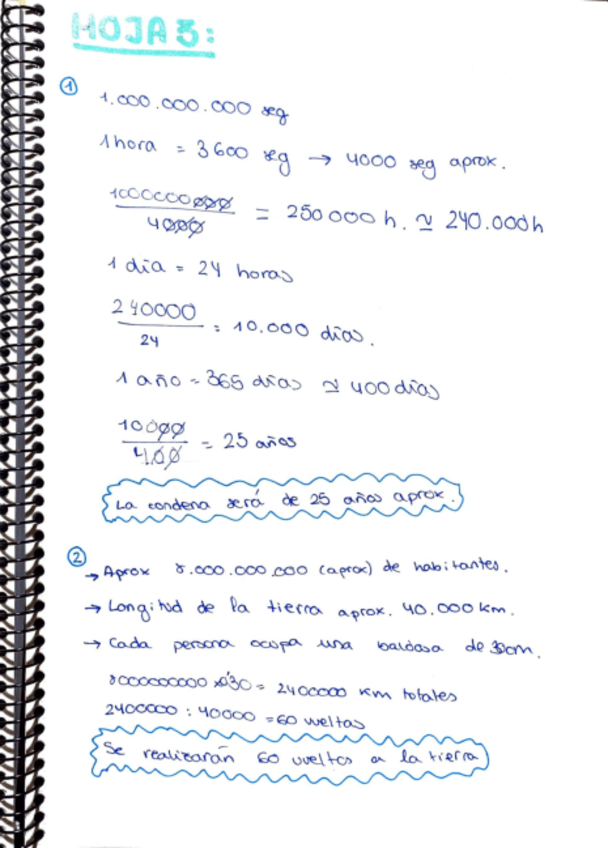 HOJA 3:
1
1.000.000.000 seg
1 hora = 3600 seg → 4000 seg aprox.
1000000000
4000
= 250000 h. ≃ 240.000h
1 dia = 24 horas
240000
24
= 10.000 dias.
1 año = 365 dias ≃ 400 dias
10000
400
= 25 años
La condena será de 25 años aprox.
2
→ Aprox 8.000.000.000 (aprox) de habitantes.
→ Longitud de la tierra aprox. 40.000 km.
→ Cada persona ocupa una baldosa de 30cm.
8000000000 x0'30 = 2400000 km totales
2400000 : 40000 = 60 vueltas
Se realizarán 60 vueltas a la tierra